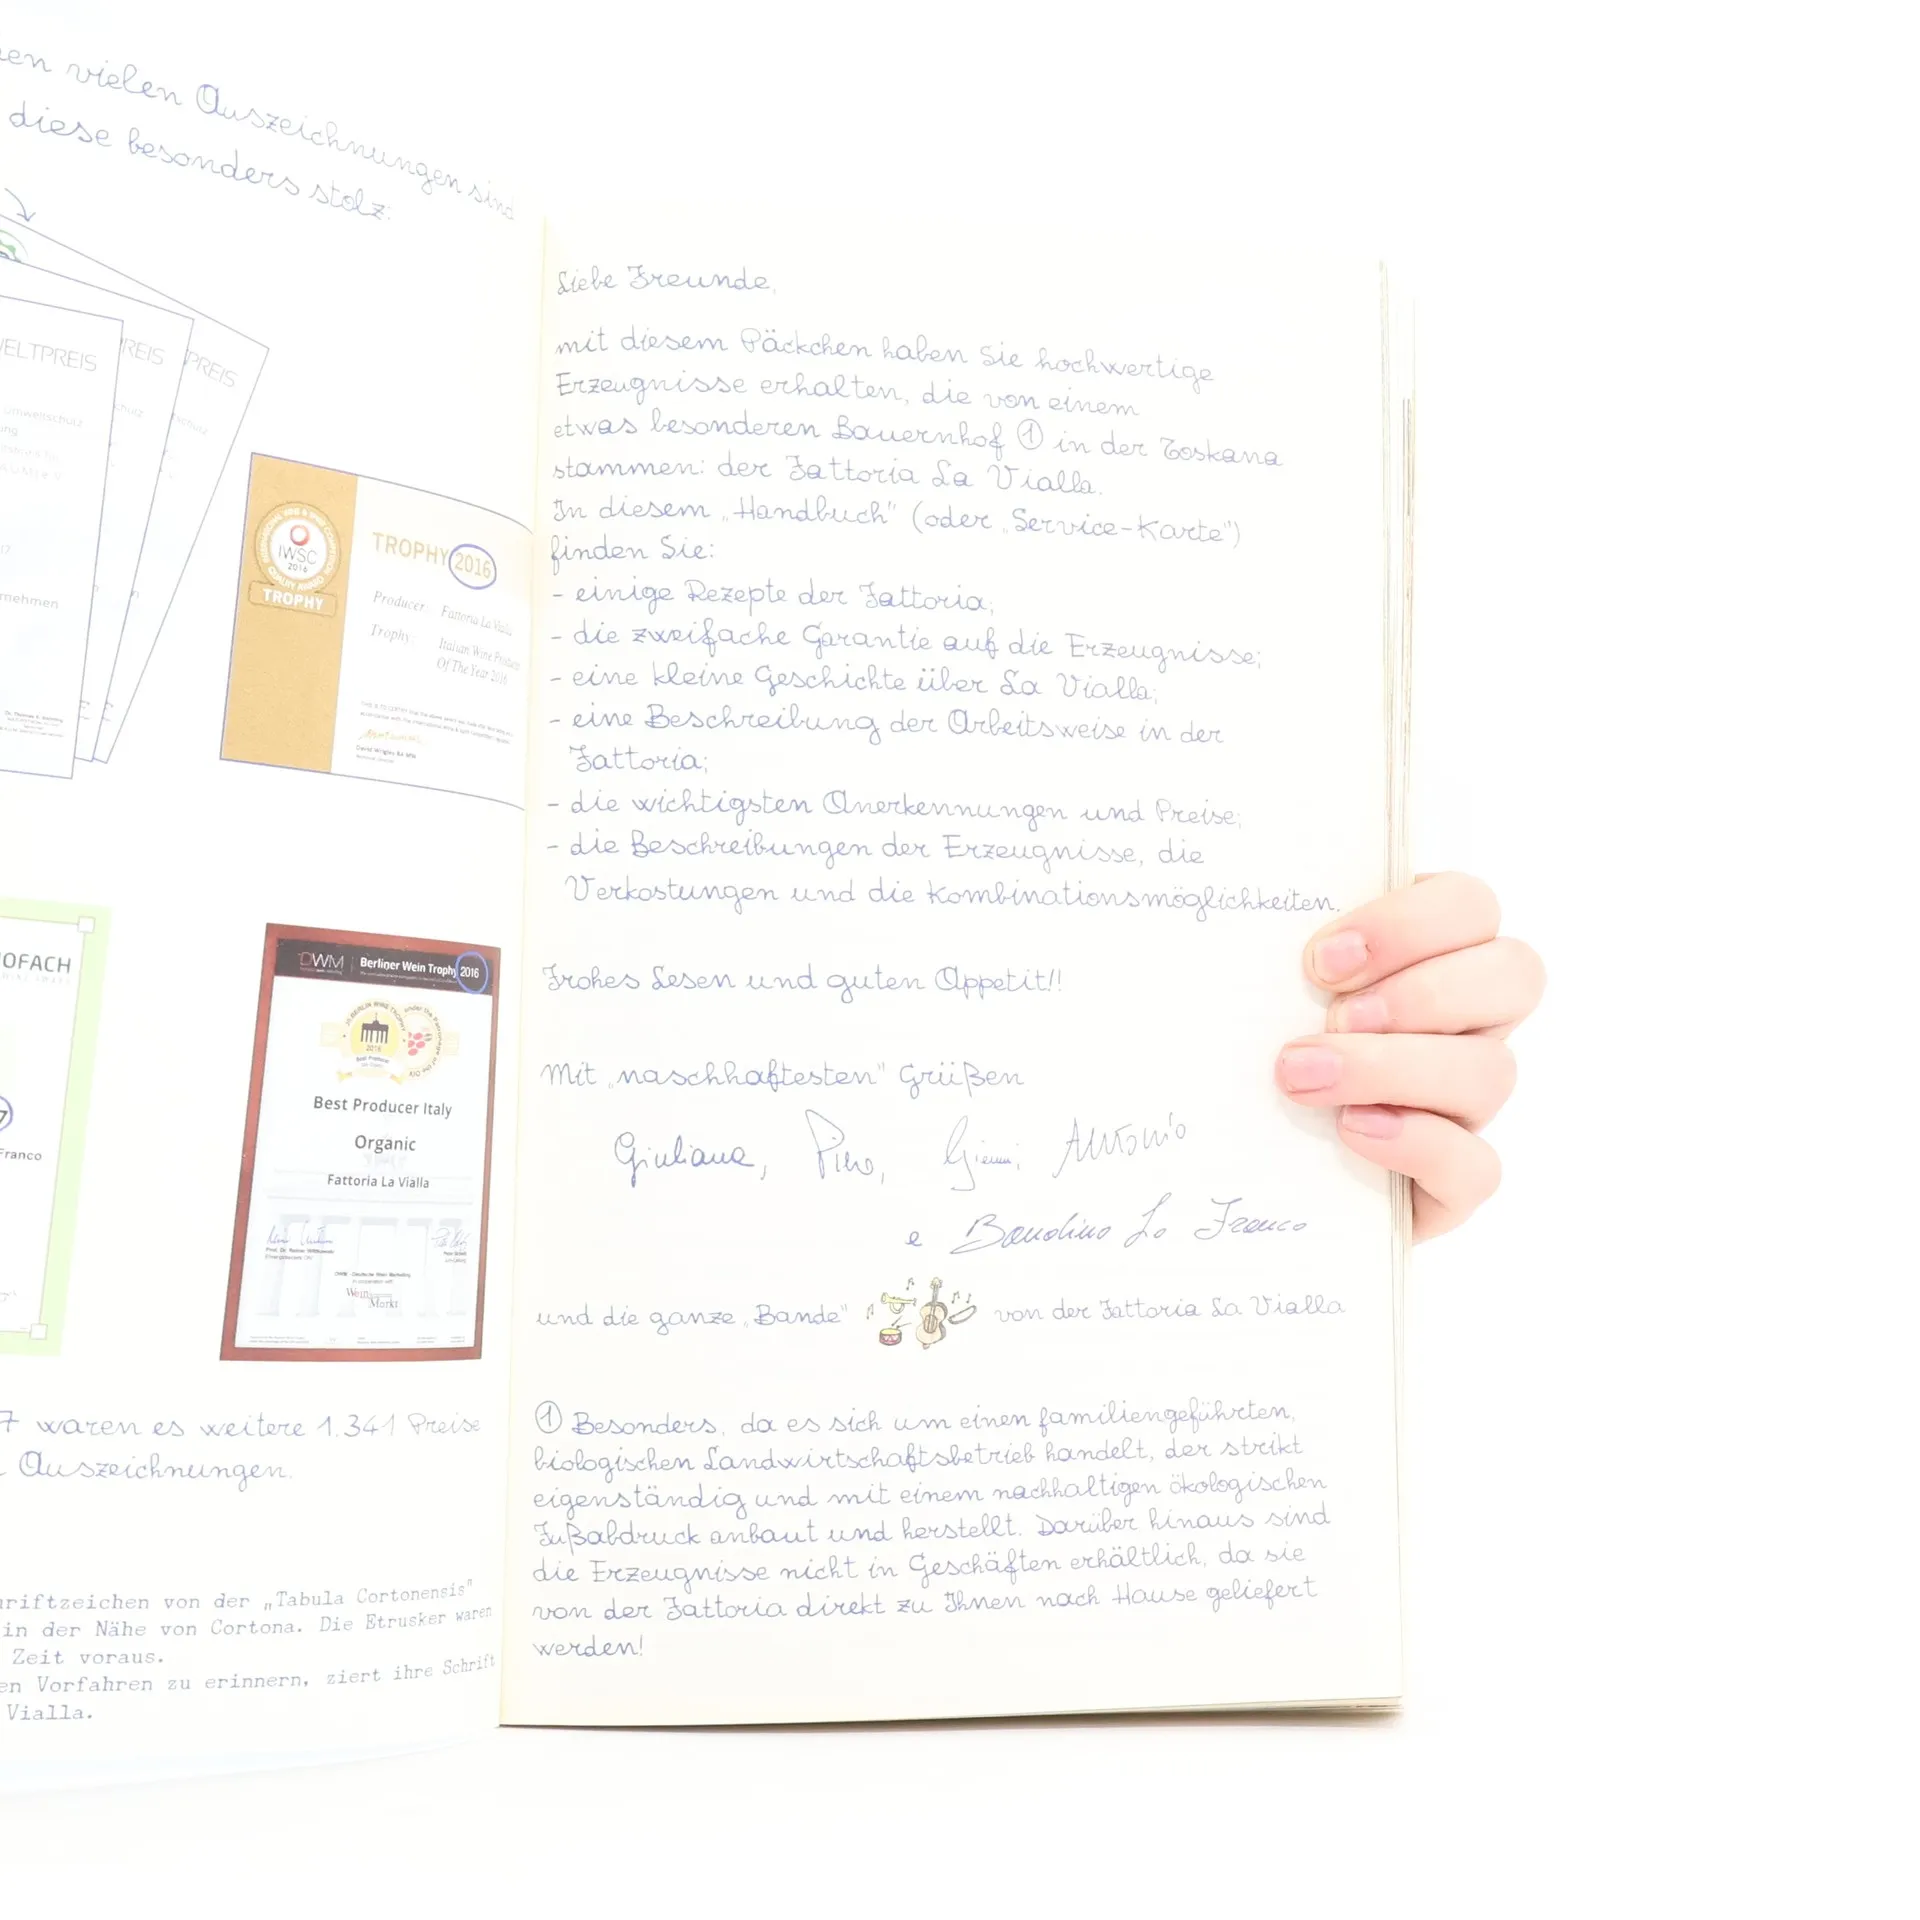 vielen Auszeichnungen sind
diese besonders stolz:
PREIS
PREIS
Umweltschutz
schutz
IWSC
2016
QUALITY AWARD
TROPHY
TROPHY 2016
Producer: Fattoria La Vialla
Trophy: Italian Wine Producer
Of The Year 2016
DWM Berliner Wein Trophy 2016
2016
Best Producer Italy
Organic
Fattoria La Vialla
in cooperation with
Wein
Markt
Franco
7 waren es weitere 1.341 Preise
Auszeichnungen.
von der „Tabula Cortonensis"
in der Nähe von Cortona. Die Etrusker waren
Zeit voraus.
Vorfahren zu erinnern, ziert ihre Schrift
Vialla.
Liebe Freunde,
mit diesem Päckchen haben Sie hochwertige
Erzeugnisse erhalten, die von einem
etwas besonderen Bauernhof ① in der Toskana
stammen: der Fattoria La Vialla.
In diesem „Handbuch" (oder „Service-Karte")
finden Sie:
- einige Rezepte der Fattoria;
- die zweifache Garantie auf die Erzeugnisse;
- eine kleine Geschichte über La Vialla;
- eine Beschreibung der Arbeitsweise in der
Fattoria;
- die wichtigsten Anerkennungen und Preise;
- die Beschreibungen der Erzeugnisse, die
Verkostungen und die Kombinationsmöglichkeiten.
Frohes Lesen und guten Appetit!!
Mit „naschhaftesten" Grüßen
Giuliana, Piero, Gianni, Antonio
e Bandino Lo Franco
und die ganze „Bande" von der Fattoria La Vialla
① Besonders, da es sich um einen familiengeführten,
biologischen Landwirtschaftsbetrieb handelt, der strikt
eigenständig und mit einem nachhaltigen ökologischen
Fußabdruck anbaut und herstellt. Darüber hinaus sind
die Erzeugnisse nicht in Geschäften erhältlich, da sie
von der Fattoria direkt zu Ihnen nach Hause geliefert
werden!